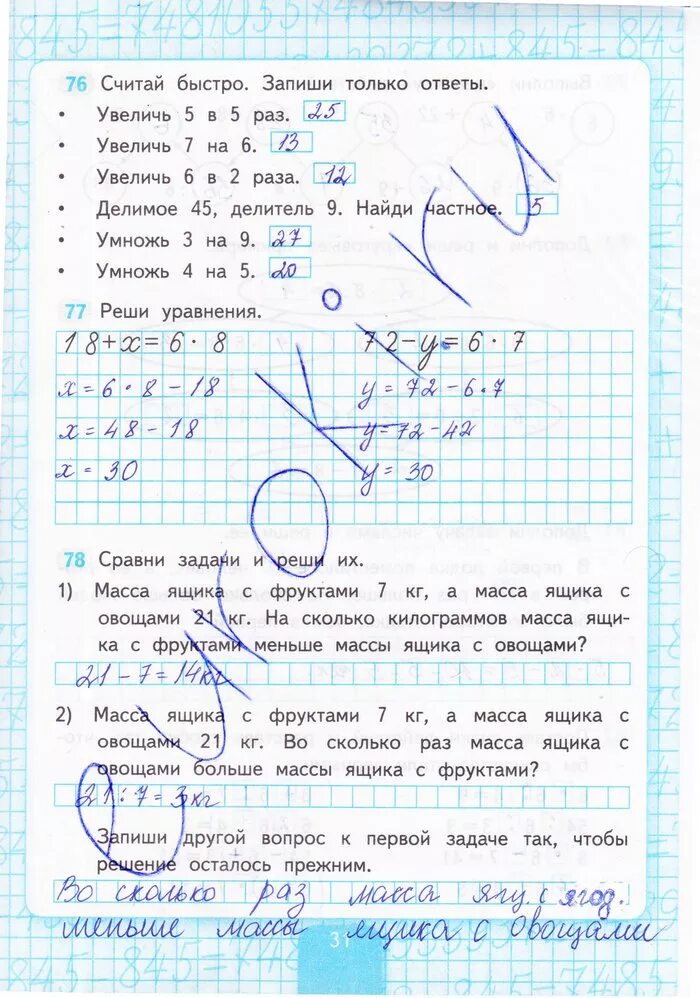 76 Считай быстро. Запиши только ответы.
• Увеличь 5 в 5 раз. 25
• Увеличь 7 на 6. 13
• Увеличь 6 в 2 раза. 12
• Делимое 45, делитель 9. Найди частное. 5
• Умножь 3 на 9. 27
• Умножь 4 на 5. 20
77 Реши уравнения.
18+x=6·8 72-y=6·7
x=6·8-18 y=72-6·7
x=48-18 y=72-42
x=30 y=30
78 Сравни задачи и реши их.
1) Масса ящика с фруктами 7 кг, а масса ящика с
овощами 21 кг. На сколько килограммов масса ящи-
ка с фруктами меньше массы ящика с овощами?
21-7=14кг
2) Масса ящика с фруктами 7 кг, а масса ящика с
овощами 21 кг. Во сколько раз масса ящика с
овощами больше массы ящика с фруктами?
21:7=3кг
Запиши другой вопрос к первой задаче так, чтобы
решение осталось прежним.
Во сколько раз масса ящ. с ягод.
меньше массы ящика с овощами
31